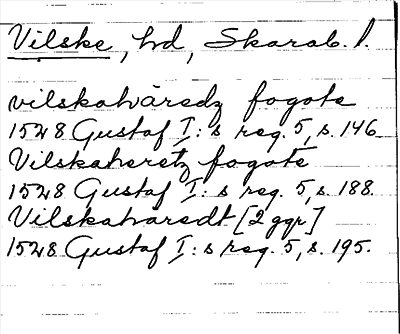 Vilske, hd, Skarab. l.
vilskahäredz fogote
1528 Gustaf I:s reg. 5, s. 146
Vilskaheretz fogote
1528 Gustaf I:s reg. 5, s. 188.
Vilskaharedt [2 ggr]
1528 Gustaf I:s reg. 5, s. 195.